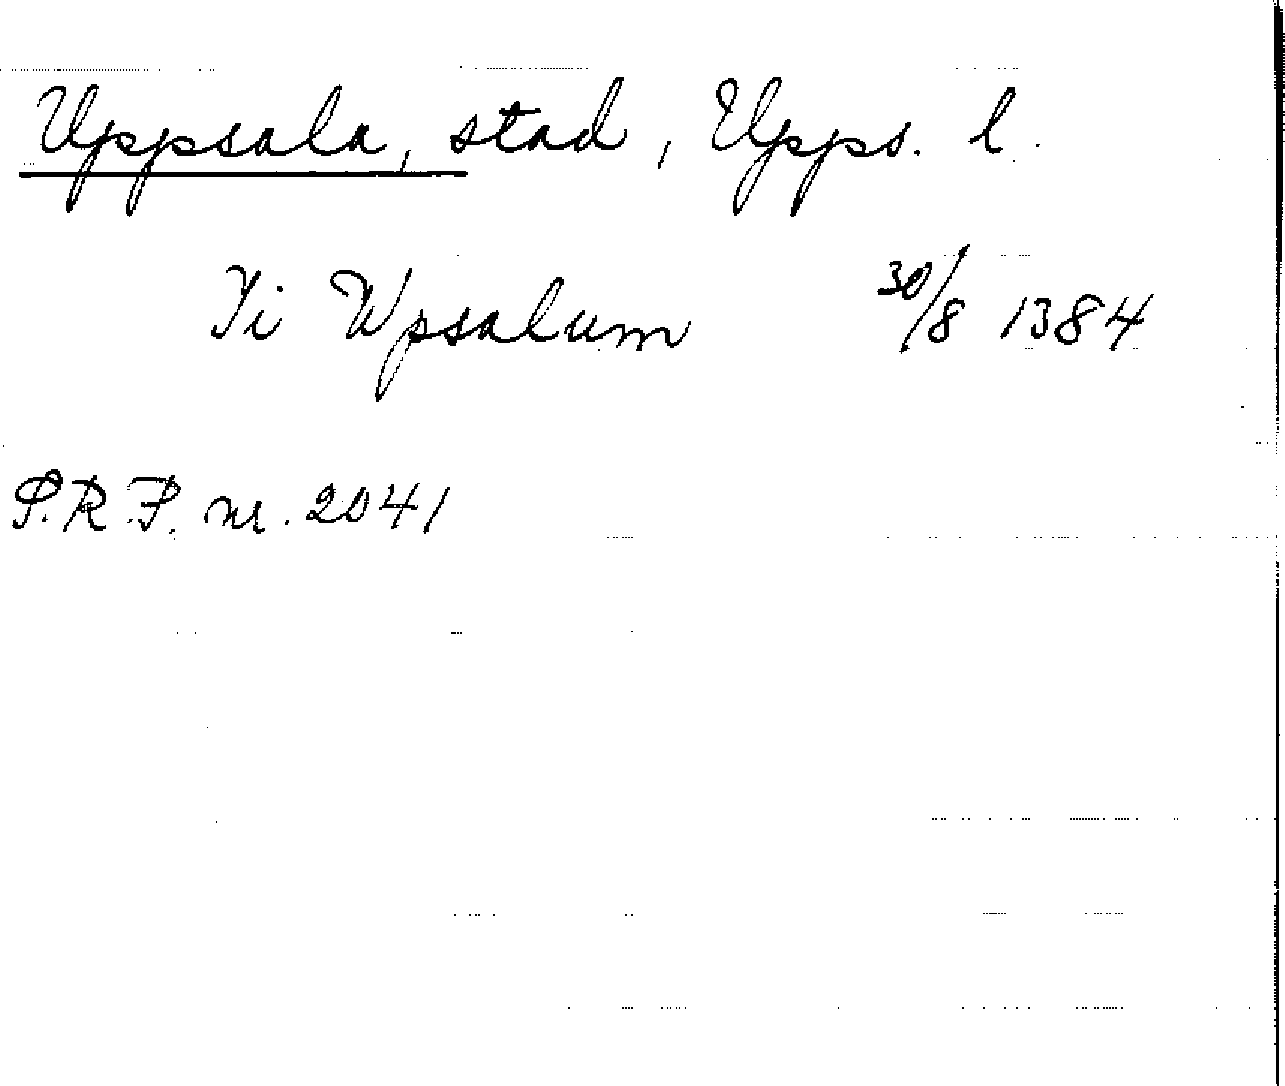 Uppsala, stad, Upps. l.
Ii Wpsalum 30/8 1384
S.R.P. nr. 2041